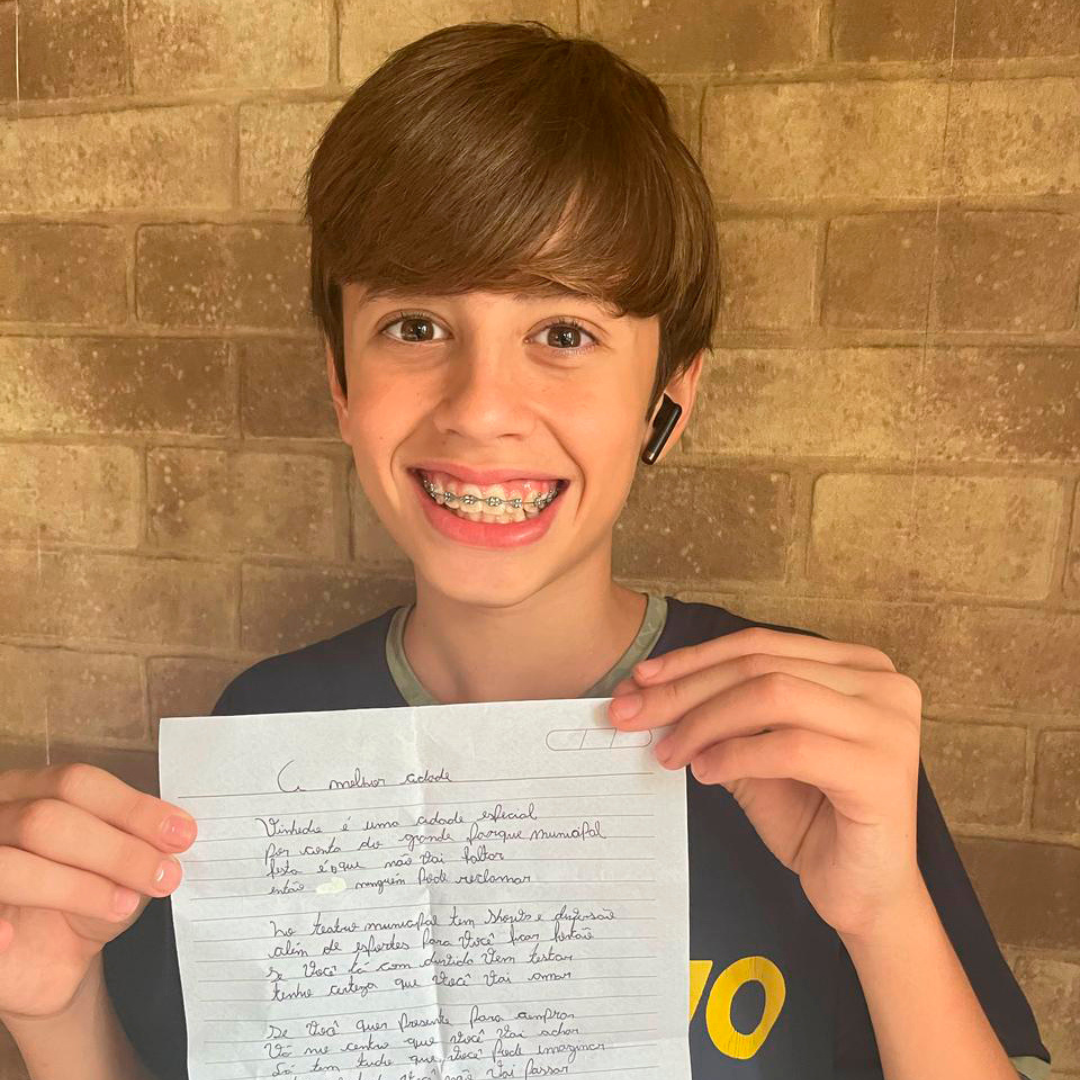 A melhor cidade
Vinhedo é uma cidade especial
por conta do grande parque municipal
festa é o que não vai faltar
então ninguém pode reclamar
No teatro municipal tem shows e diversão
além de esportes para você ficar fortão
se você tá com dúvida vem testar
tenho certeza que você vai amar
Se você quer presente para comprar
Vá no centro que você vai achar
Lá tem tudo que você pode imaginar
você não vai passar
VO